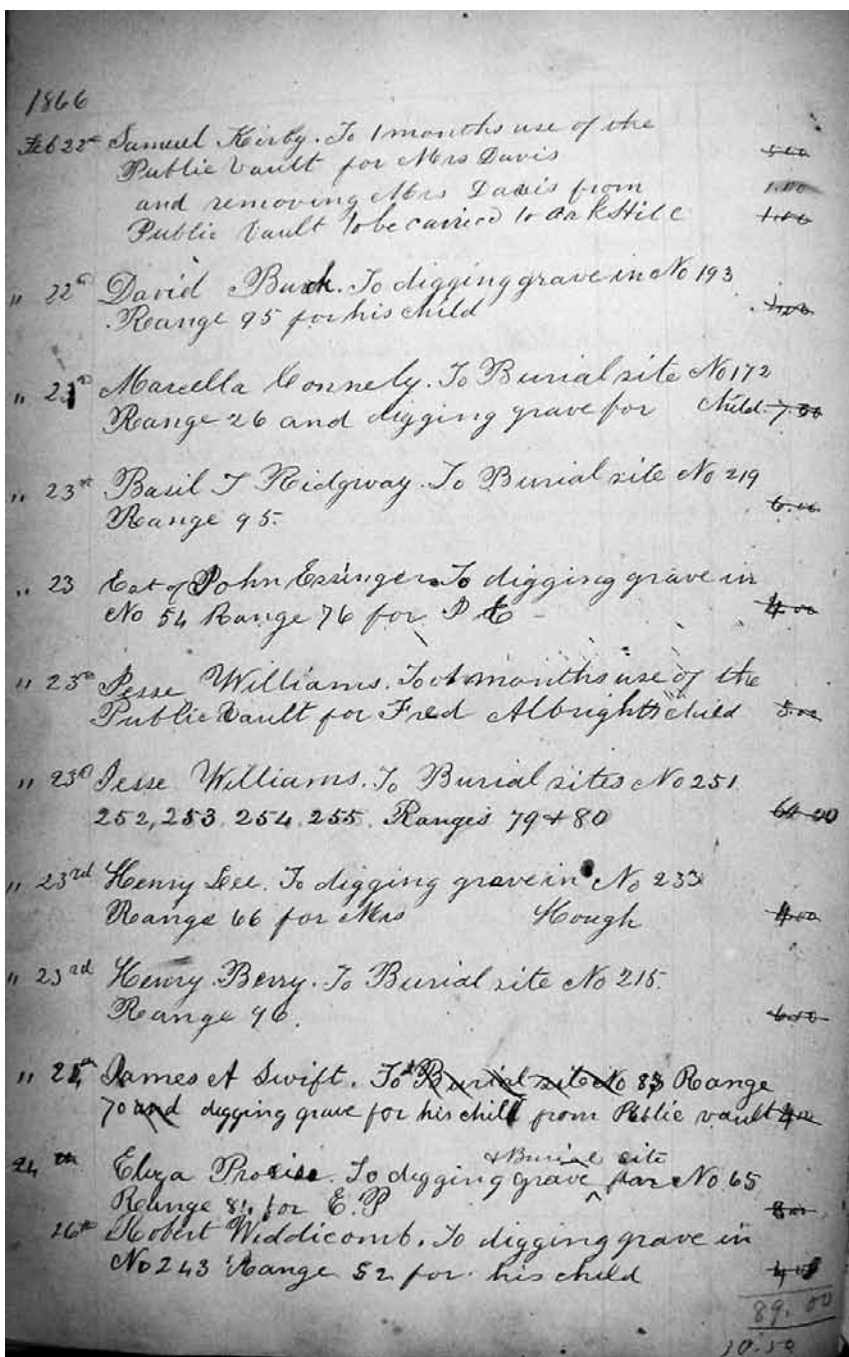 1866
Feb 22nd Samuel Kirby. To 1 months use of the
Public Vault for Mrs Davis 5.00
and removing Mrs Davis from 1.00
Public Vault to be carried to Oak Hill 1.00
" 22nd David Burk. To digging grave in No 193
Range 95 for his child
" 23rd Marcella Connely. To Burial site No 172
Range 26 and digging grave for Child 7.00
" 23rd Basil T Ridgway. To Burial site No 219
Range 95. 6.00
" 23 Est of John Essinger. To digging grave in
No 54 Range 76 for J E 4.00
" 23rd Jesse Williams. To 1 months use of the
Public Vault for Fred Albrights child 5.00
" 23rd Jesse Williams. To Burial sites No 251
252, 253. 254. 255. Ranges 79 & 80 60 00
" 23rd Henry Lee. To digging grave in No 233
Range 66 for Mrs Hough 4.00
" 23rd Henry Berry. To Burial site No 215.
Range 96. 6.00
" 24th James A Swift. To Burial site No 83 Range
70 and digging grave for his child from Public vault 4.00
& Burial site
24th Eliza To digging grave for No 65
Range 81. for E. P 8.00
26th Robert Widdicomb. To digging grave in
No 243 Range 52 for his child 4.00
89.00
10.50